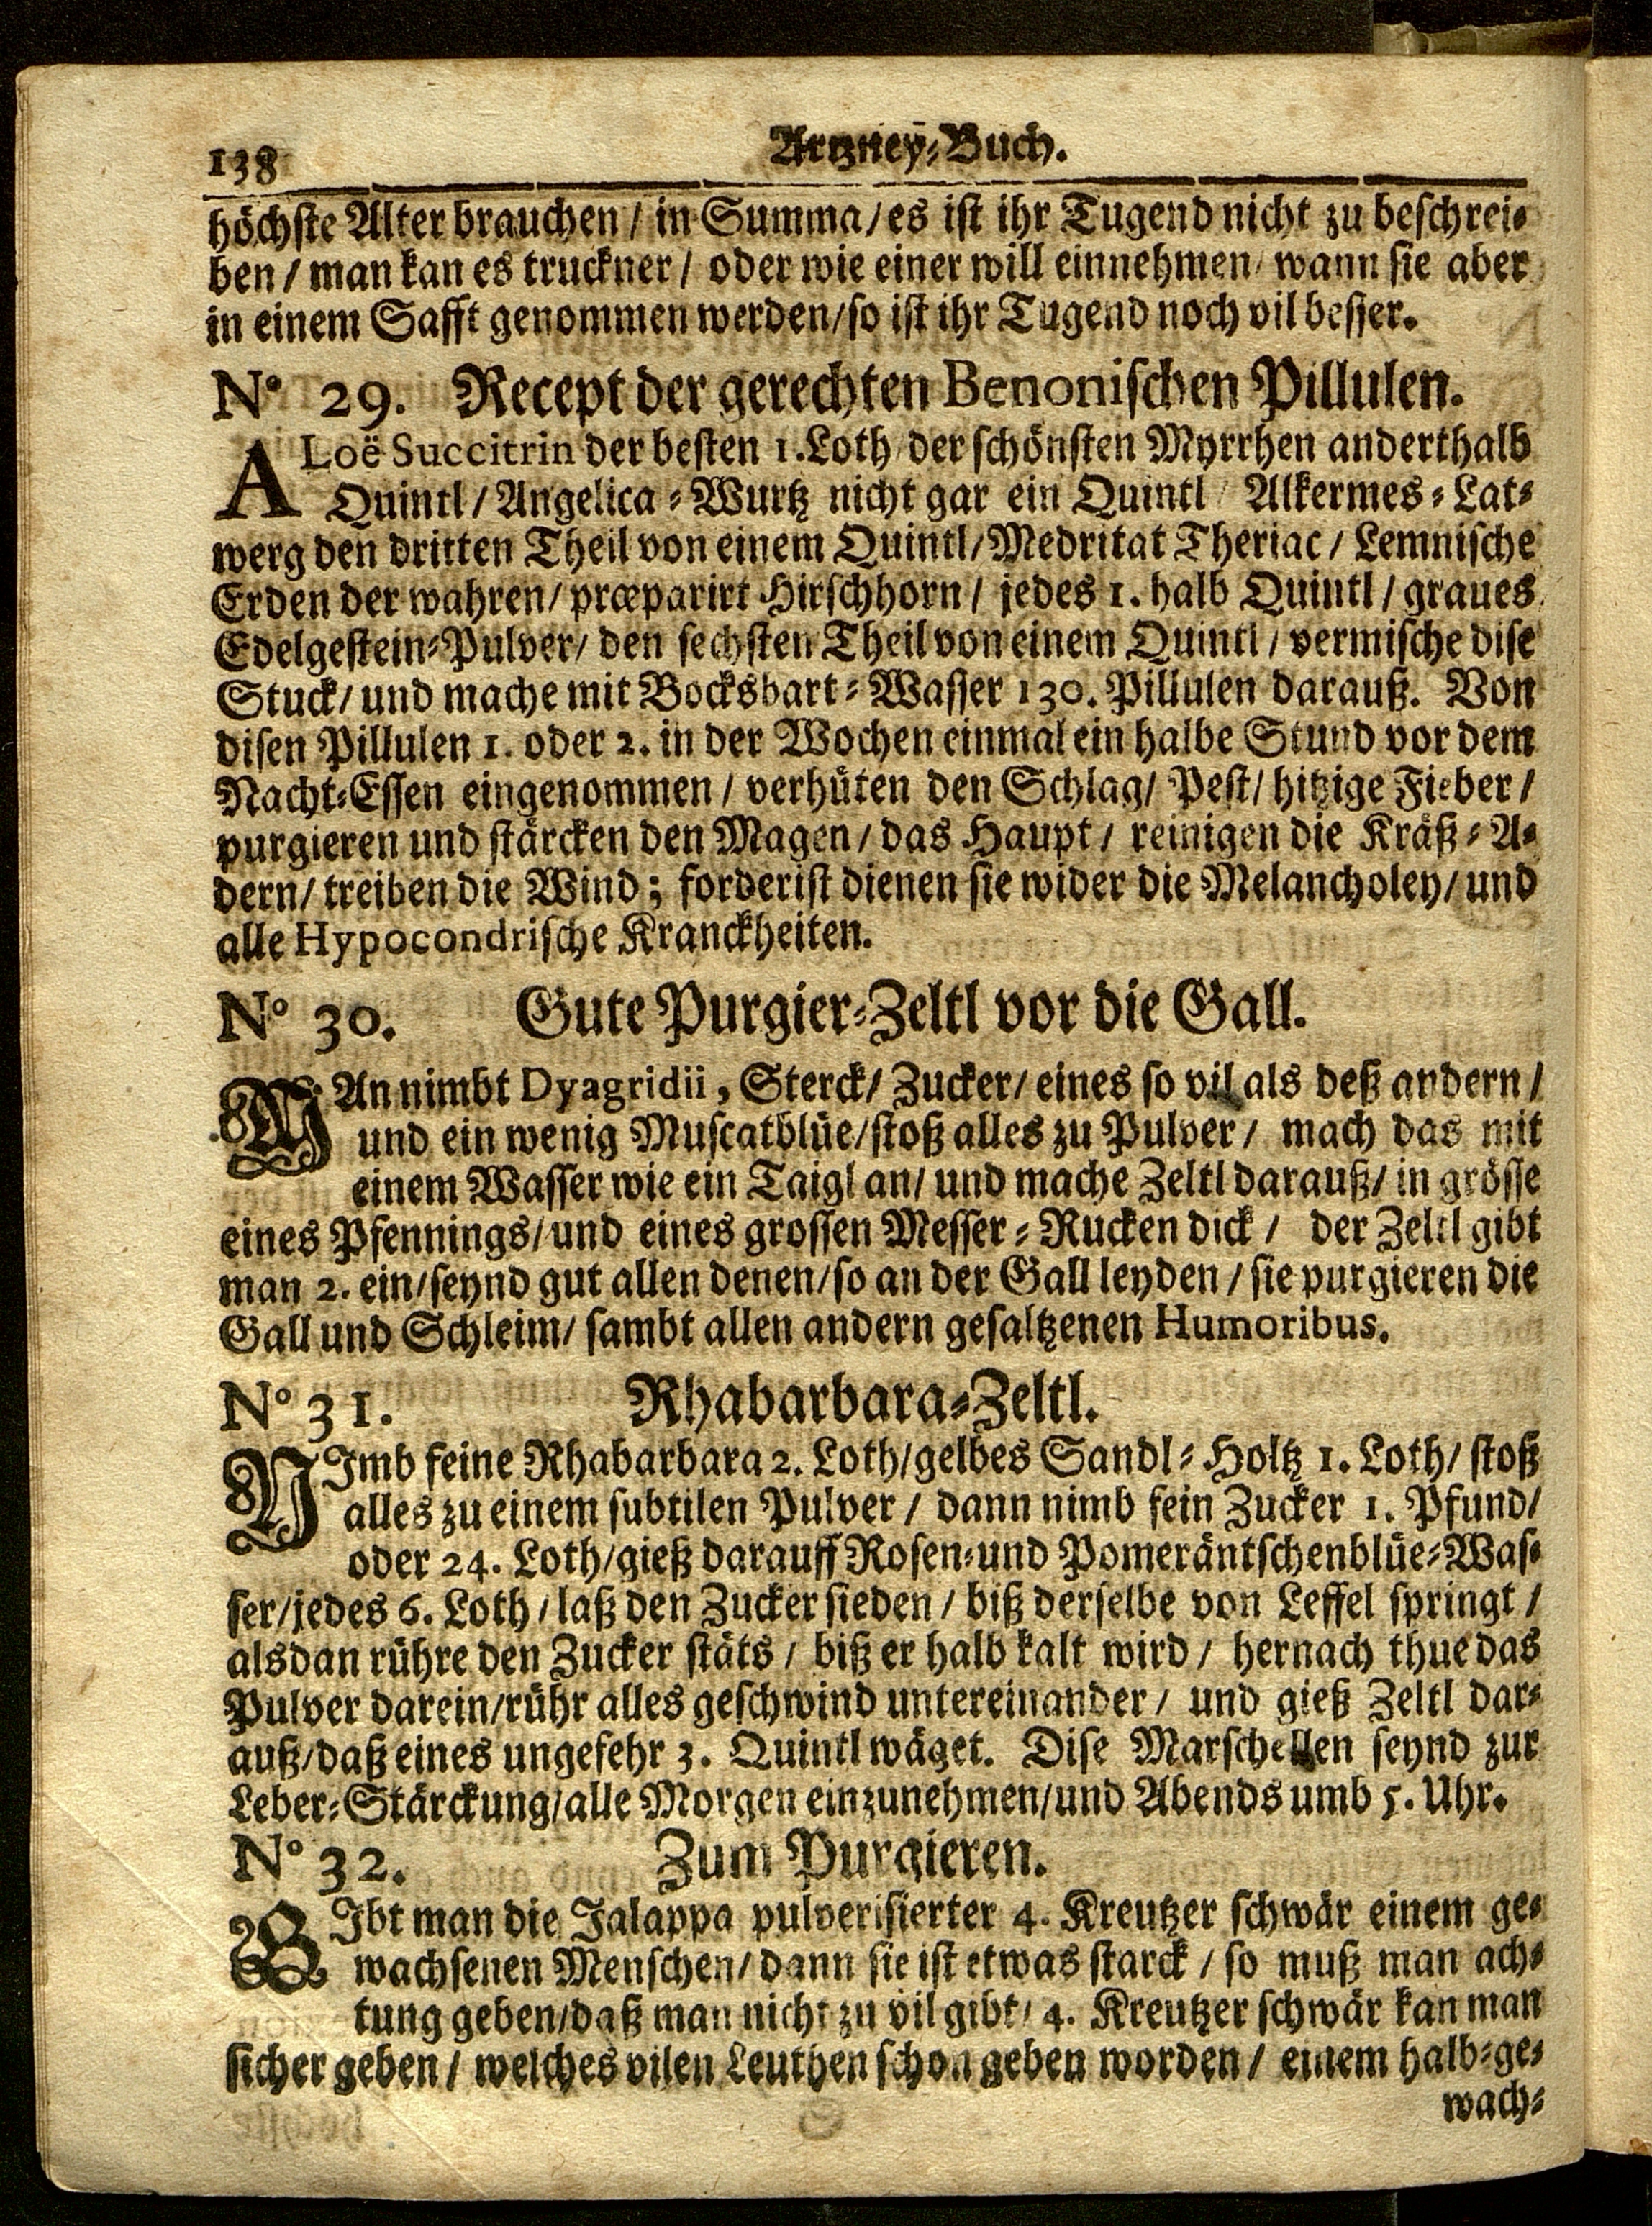 138 Artzney-Buch.
höchste Alter brauchen / in Summa / es ist ihr Tugend nicht zu beschrei-
ben / man kan es truckner / oder wie einer will einnehmen / wann sie aber
in einem Safft genommen werden / so ist ihr Tugend noch vil besser.
N° 29. Recept der gerechten Benonischen Pillulen.
ALoë Succitrin der besten 1. Loth / der schönsten Myrrhen anderthalb
Quintl / Angelica-Wurtz nicht gar ein Quintl / Alkermes-Lat-
werg den dritten Theil von einem Quintl / Medritat Theriac / Lemnische
Erden der wahren / præparirt Hirschhorn / jedes 1. halb Quintl / graues
Edelgestein-Pulver / den sechsten Theil von einem Quintl / vermische dise
Stuck / und mache mit Bocksbart-Wasser 130. Pillulen darauß. Von
disen Pillulen 1. oder 2. in der Wochen einmal ein halbe Stund vor dem
Nacht-Essen eingenommen / verhüten den Schlag / Pest / hitzige Fieber /
purgieren und stärcken den Magen / das Haupt / reinigen die Kräß-A-
dern / treiben die Wind; forderist dienen sie wider die Melancholey / und
alle Hypocondrische Kranckheiten.
N° 30. Gute Purgier-Zeltl vor die Gall.
MAn nimbt Dyagridii, Sterck / Zucker / eines so vil als deß andern /
und ein wenig Muscatblüe / stoß alles zu Pulver / mach das mit
einem Wasser wie ein Taigl an / und mache Zeltl darauß / in grösse
eines Pfennings / und eines grossen Messer-Rucken dick / der Zeltl gibt
man 2. ein / seynd gut allen denen / so an der Gall leyden / sie purgieren die
Gall und Schleim / sambt allen andern gesaltzenen Humoribus.
N° 31. Rhabarbara-Zeltl.
NImb feine Rhabarbara 2. Loth / gelbes Sandl-Holtz 1. Loth / stoß
alles zu einem subtilen Pulver / dann nimb fein Zucker 1. Pfund /
oder 24. Loth / gieß darauff Rosen- und Pomeräntschenblüe-Was-
ser / jedes 6. Loth / laß den Zucker sieden / biß derselbe von Leffel springt /
alsdan rühre den Zucker stäts / biß er halb kalt wird / hernach thue das
Pulver darein / rühr alles geschwind untereinander / und gieß Zeltl dar-
auß / daß eines ungefehr 3. Quintl wäget. Dise Marschellen seynd zur
Leber-Stärckung / alle Morgen einzunehmen / und Abends umb 5. Uhr.
N° 32. Zum Purgieren.
GIbt man die Jalappa pulverisierter 4. Kreutzer schwär einem ge-
wachsenen Menschen / dann sie ist etwas starck / so muß man ach-
tung geben / daß man nicht zu vil gibt / 4. Kreutzer schwär kan man
sicher geben / welches vilen Leuthen schon geben worden / einem halb-ge-
wach-